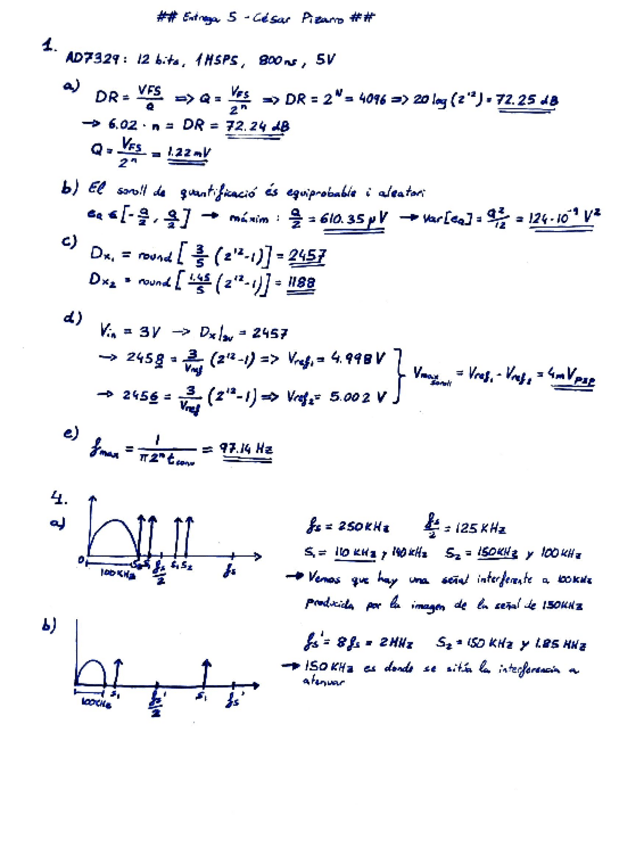 ## Entrega 5 - César Pizarro ##
1. AD7329: 12 bits, 1MSPS, 800ns, 5V
a) DR = VFS/Q => Q = VFS/2^n => DR = 2^N = 4096 => 20 log(2^12) = 72.25 dB
→ 6.02 · n = DR = 72.24 dB
Q = VFS/2^n = 1.22 mV
b) El soroll de quantificació és equiprobable i aleatori
eq ∈ [-Q/2, Q/2] → màxim : Q/2 = 610.35 µV → var[eq] = Q²/12 = 124·10^-9 V²
c) Dx1 = round [3/5 (2^12-1)] = 2457
Dx2 = round [1.45/5 (2^12-1)] = 1188
d) Vin = 3V → Dx|3V = 2457
→ 2458 = 3/Vref (2^12-1) => Vref1 = 4.998 V
Vmax soroll = Vref1 - Vref2 = 4mVpap
→ 2456 = 3/Vref (2^12-1) => Vref2 = 5.002 V
e) fmax = 1/(π 2^n tconv) = 97.14 Hz
4.
a) fs = 250KHz fs/2 = 125KHz
S1 = 110 KHz y 140KHz S2 = 150KHz y 100KHz
→ Vemos que hay una señal interferente a 100KHz
producida por la imagen de la señal de 150KHz
0 100KHz S2 S1 fs/2 S1 S2 fs
b) fs' = 8fs = 2MHz S2 = 150 KHz y 1.85 MHz
→ 150KHz es donde se sitúa la interferencia a
atenuar
100KHz S1 fs'/2 S1 fs'